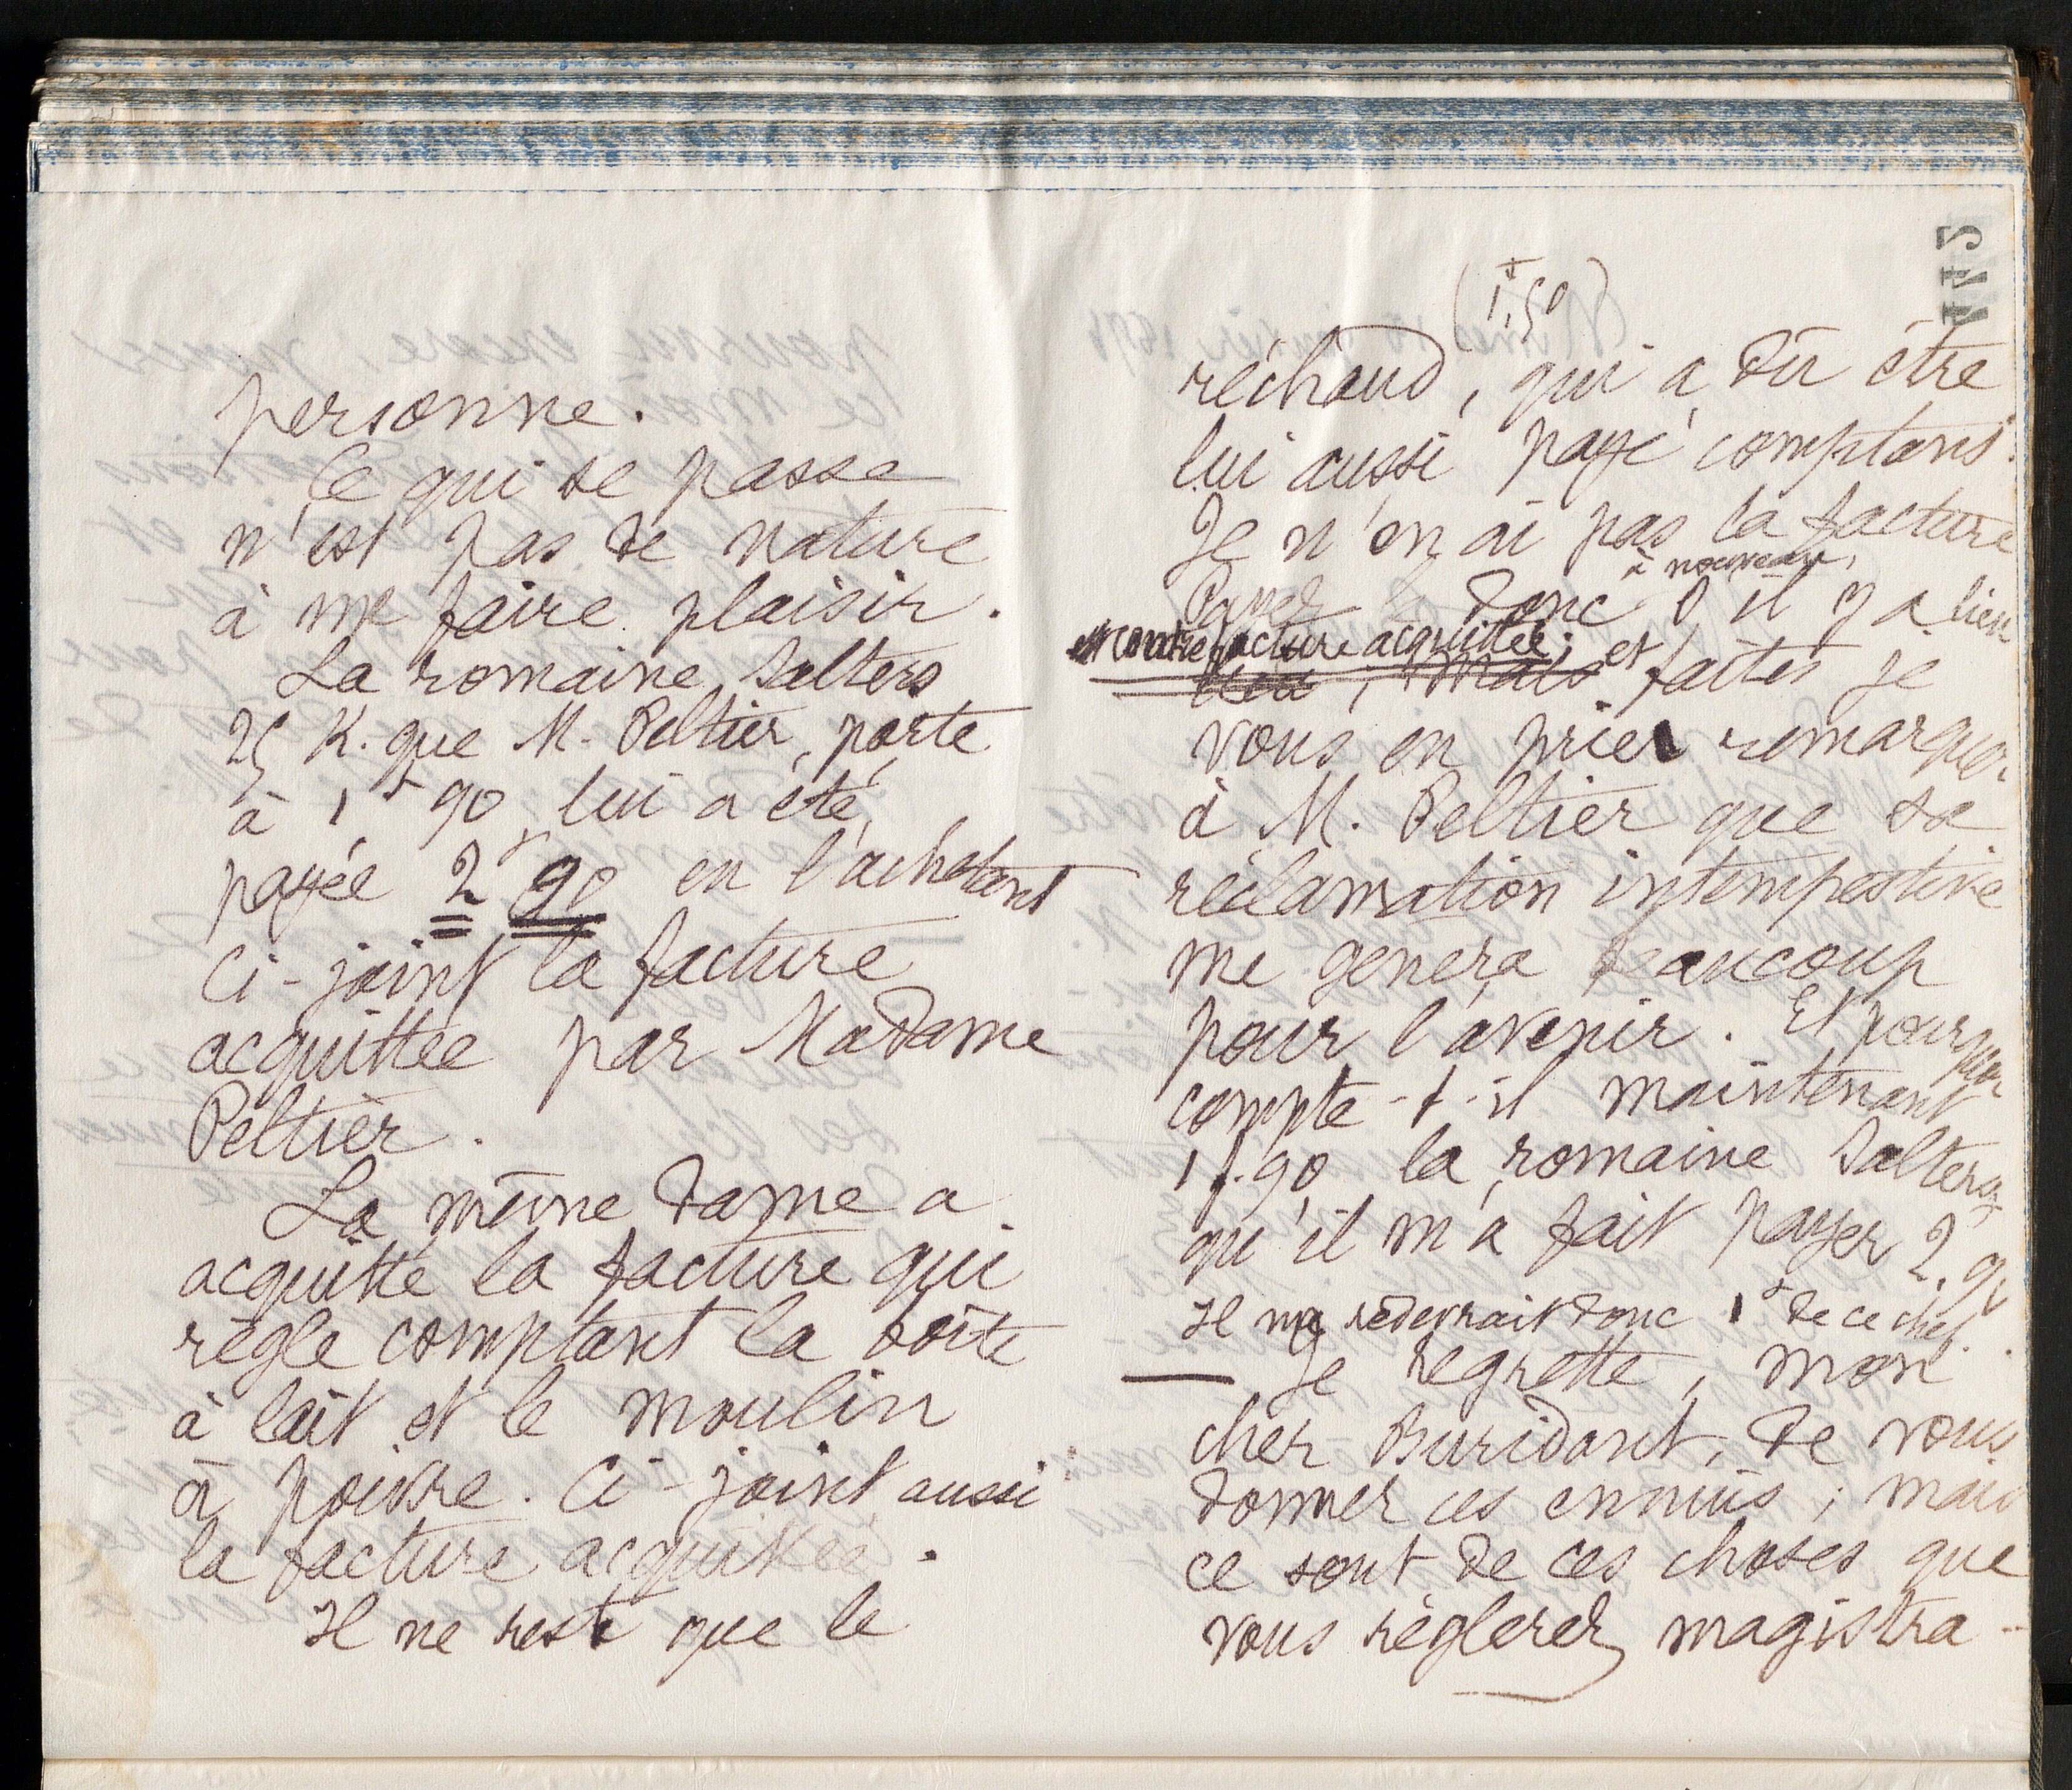 personne.
Ce qui se passe
n'est pas de nature
à me faire plaisir.
La romaine Salters
25 K. que M. Peltier, porte
à 1f 90 lui a été
payée 2f 90 en l'achetant
Ci-joint la facture
acquittée par Madame
Peltier.
La même dame a
acquitté la facture qui
règle comptant la boîte
à lait et le moulin
à poivre. Ci-joint aussi
la facture acquittée.
Il ne reste que le
(1f,50)
réchaud, qui a dû être
lui aussi payé comptant.
Je n'en ai pas la facture
à nouveau,
Payez donc s'il y a lieu
contre facture acquittée;
lieu, mais et faites je
vous en prie remarquer
à M. Peltier que sa
réclamation intempestive
me gênera beaucoup
pour l'avenir. Et pourquoi
compte-t-il maintenant
1f.90 la romaine Salters
qu'il m'a fait payer 2.90
Il me redevrait donc 1f de ce chef.
— Je regrette, mon
cher Buridant, de vous
donner ces ennuis; mais
ce sont de ces choses que
vous réglerez magistra-